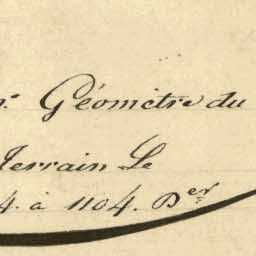 Géomètre du
Terrain Le
4. à 1104. Der